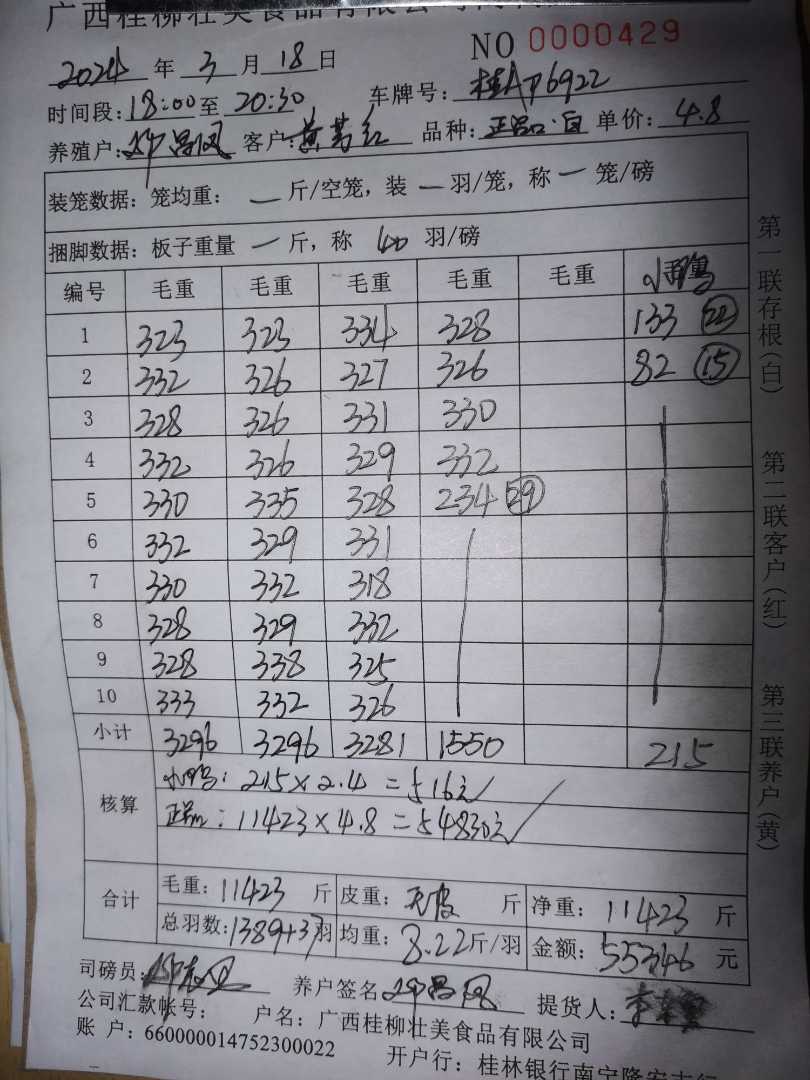 广西桂柳壮美食品有限公司
NO 0000429
2024 年 3 月 18 日
时间段:18:00至 20:30 车牌号: 桂AP6922
养殖户: 昌凤 客户: 黄 红 品种: 正品口·白 单价: 4.8
装笼数据: 笼均重: — 斤/空笼, 装 — 羽/笼, 称 — 笼/磅
捆脚数据: 板子重量 — 斤, 称 40 羽/磅
编号 毛重 毛重 毛重 毛重 毛重 小 鸭
1 323 323 334 328 133 (22)
2 332 326 327 326 82 (15)
3 328 326 331 330
4 332 326 329 332
5 330 335 328 234 (29)
6 332 329 331
7 330 332 318
8 328 329 332
9 328 338 325
10 333 332 326
小计 3296 3296 3281 1550 215
核算 小 鸭: 215×2.4=516元
正品: 11423×4.8=54830元
合计 毛重: 11423 斤 皮重: 无皮 斤 净重: 11423 斤
总羽数: 1389+37羽 均重: 8.22斤/羽 金额: 55346 元
司磅员: 养户签名 昌凤 提货人: 李
公司汇款帐号: 户名: 广西桂柳壮美食品有限公司
账 户: 660000014752300022 开户行: 桂林银行南宁隆安支行
第一联存根(白) 第二联客户(红) 第三联养户(黄)